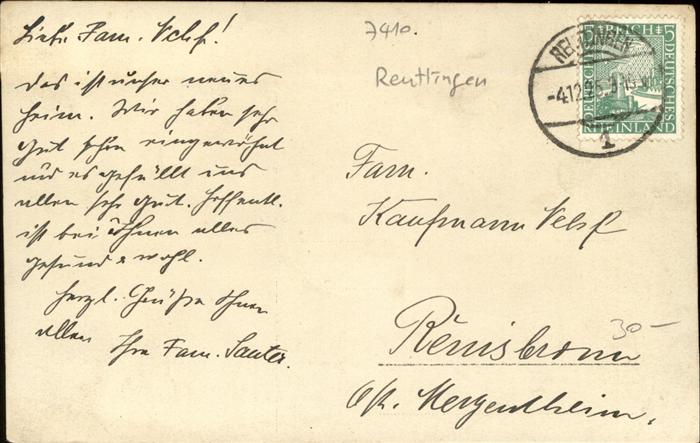 Liebe Fam. Volpf!
das ist unser neues
Heim. Wir haben sehr
gut schon eingewöhnt
und es gefällt uns
allen sehr gut. Hoffentl.
ist bei Ihnen alles
gesund & wohl.
Herzl. Grüße Ihnen
allen Ihre Fam. Sauter.
7410.
Reutlingen
REUTLINGEN
-4.12.25.
1
5 DEUTSCHES 5
RHEINLAND
Fam.
Kaufmann
30-
O/A. Mergentheim.